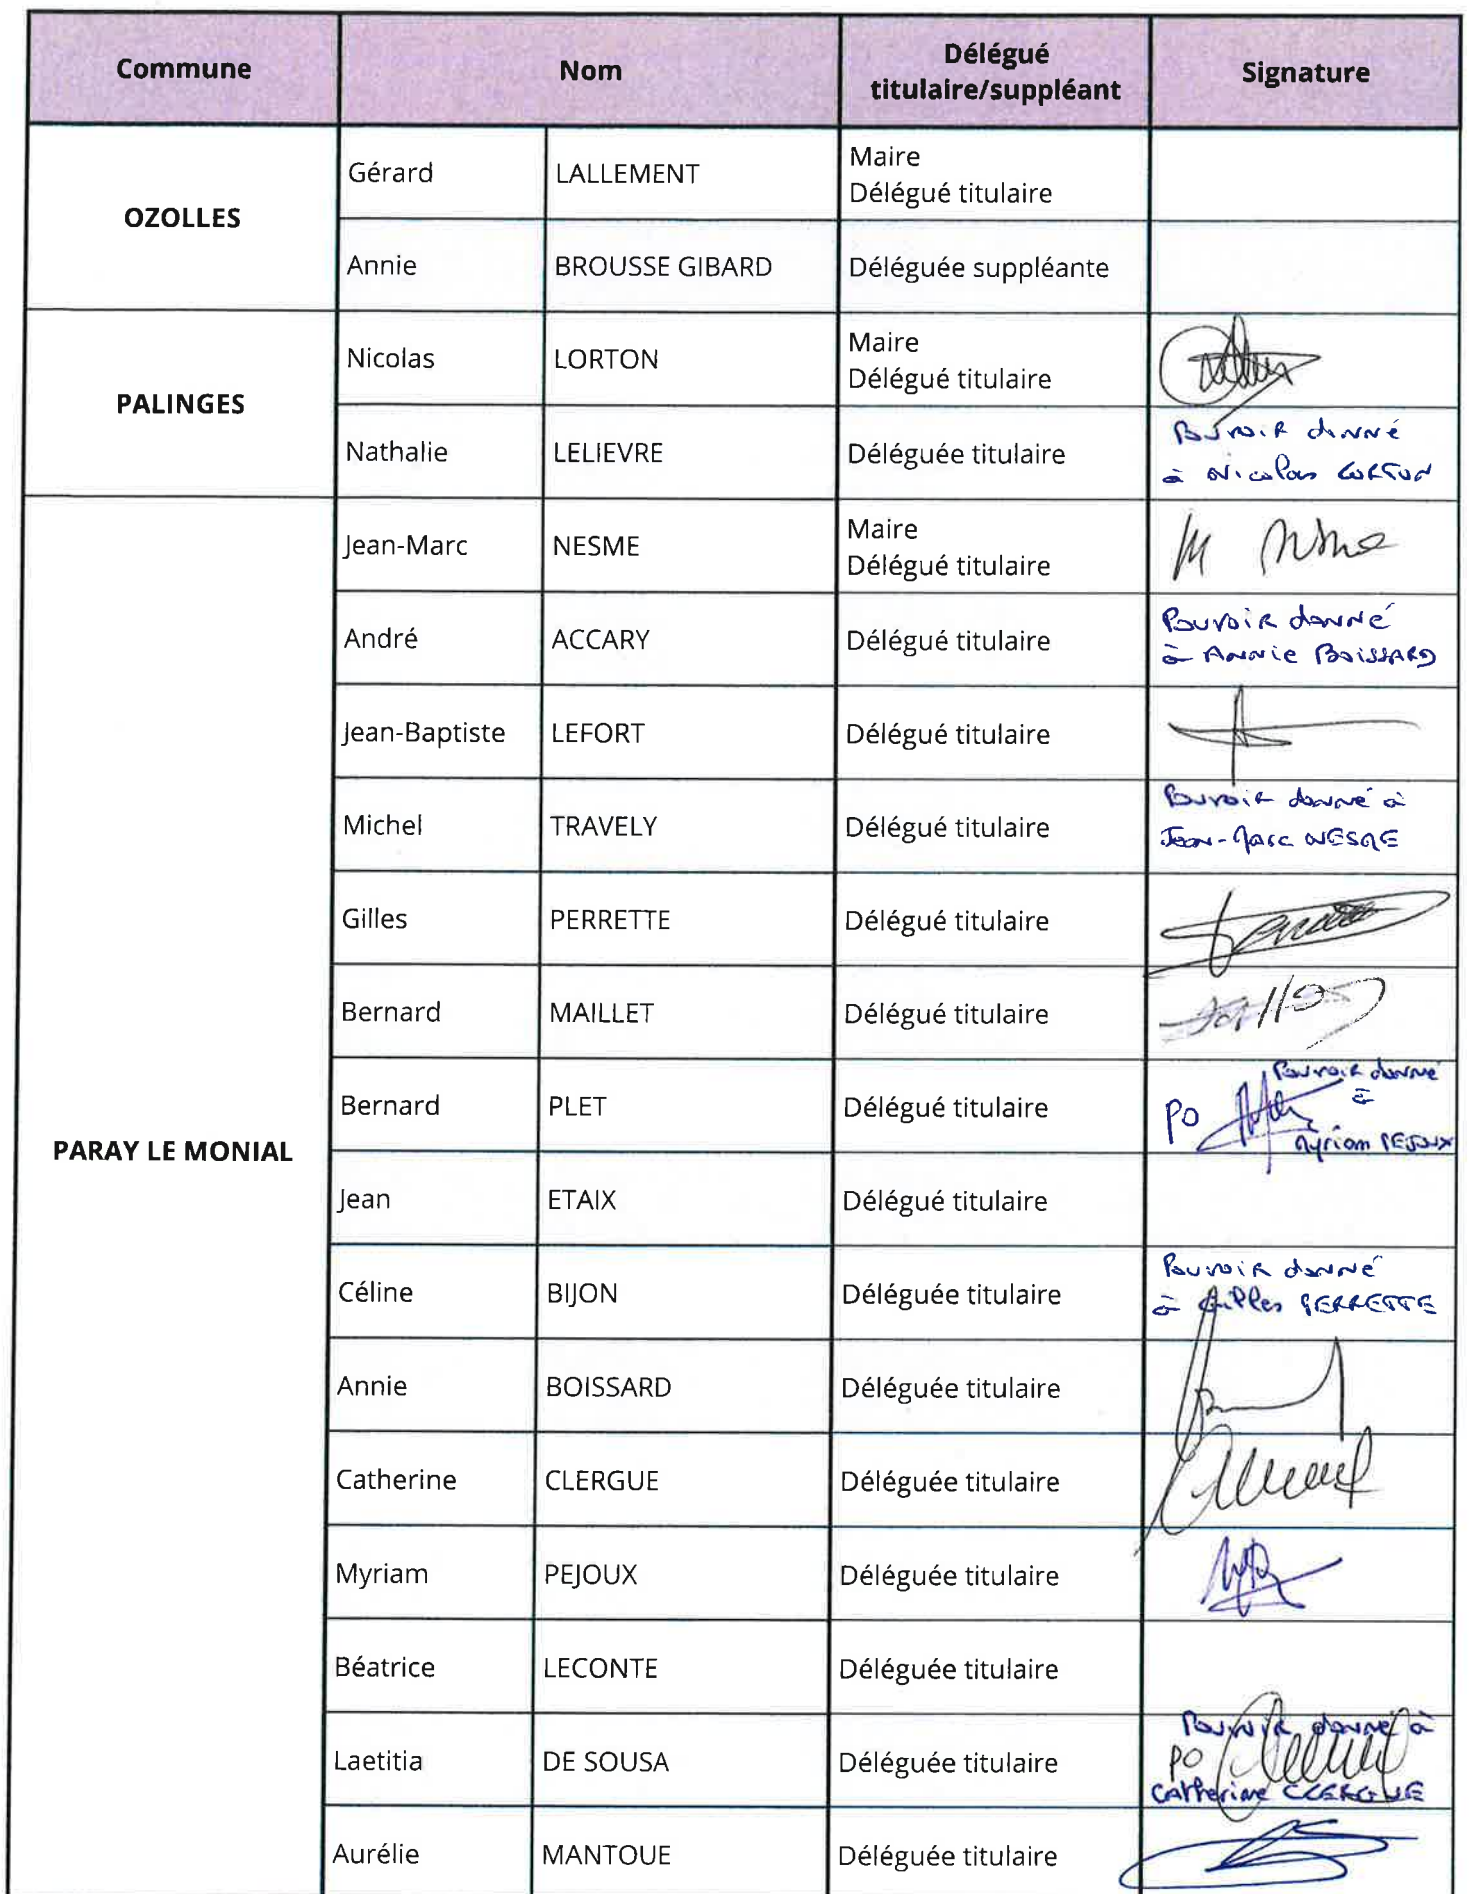 Commune Nom Délégué titulaire/suppléant Signature
OZOLLES
Gérard LALLEMENT Maire
Délégué titulaire
Annie BROUSSE GIBARD Déléguée suppléante
PALINGES
Nicolas LORTON Maire
Délégué titulaire
Nathalie LELIEVRE Déléguée titulaire Pouvoir donné
à Nicolas LORTON
PARAY LE MONIAL
Jean-Marc NESME Maire
Délégué titulaire
André ACCARY Délégué titulaire Pouvoir donné
à Annie BOISSARD
Jean-Baptiste LEFORT Délégué titulaire
Michel TRAVELY Délégué titulaire Pouvoir donné à
Jean-Marc NESME
Gilles PERRETTE Délégué titulaire
Bernard MAILLET Délégué titulaire
Bernard PLET Délégué titulaire Pouvoir donné
PO à
Myriam PEJOUX
Jean ETAIX Délégué titulaire
Céline BIJON Déléguée titulaire Pouvoir donné
à Gilles PERRETTE
Annie BOISSARD Déléguée titulaire
Catherine CLERGUE Déléguée titulaire
Myriam PEJOUX Déléguée titulaire
Béatrice LECONTE Déléguée titulaire
Laetitia DE SOUSA Déléguée titulaire Pouvoir donné à
PO
Catherine CLERGUE
Aurélie MANTOUE Déléguée titulaire